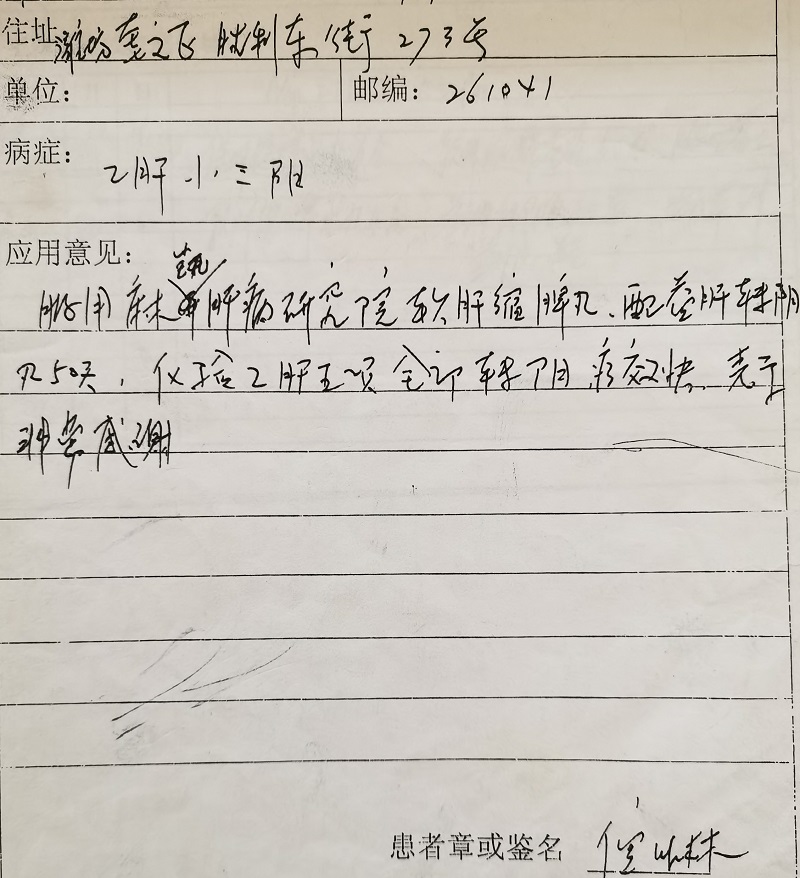 住址 潍坊 奎文区 胜利东街 273号
单位： 邮编：261041
病症： 乙肝小三阳
应用意见：
服用麻城肝病研究院软肝缩脾丸、配益肝转阴
丸50天，仪验乙肝五项全部转阴 疗效快 表示
非常感谢
患者章或鉴名